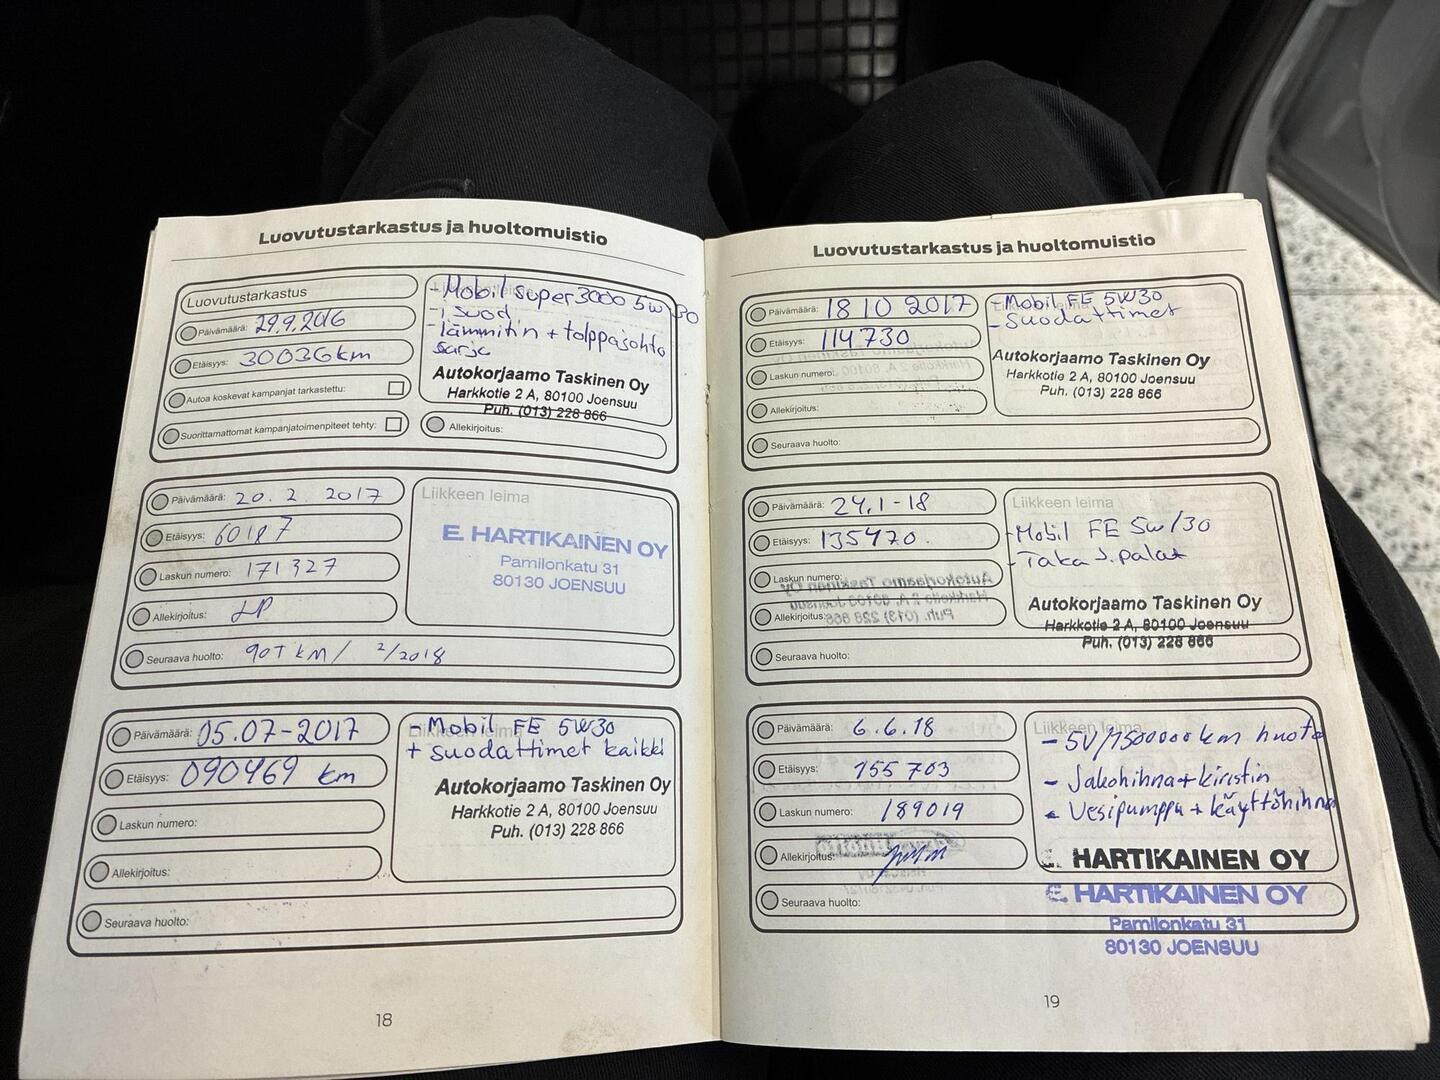 Luovutustarkastus ja huoltomuistio
Luovutustarkastus
Päivämäärä: 29.9.2016
Etäisyys: 30036km
Autoa koskevat kampanjat tarkastettu:
Suorittamattomat kampanjatoimenpiteet tehty:
- Mobil super 3000 5w30
- i suod
- lämmitin + tolppajohto
sarja
Autokorjaamo Taskinen Oy
Harkkotie 2 A, 80100 Joensuu
Puh. (013) 228 866
Allekirjoitus:
Päivämäärä: 20.2.2017
Etäisyys: 60187
Laskun numero: 171327
Allekirjoitus:
Seuraava huolto: 90T km/ 2/2018
Liikkeen leima
E. HARTIKAINEN OY
Pamilonkatu 31
80130 JOENSUU
Päivämäärä: 05.07-2017
Etäisyys: 090469 km
Laskun numero:
Allekirjoitus:
Seuraava huolto:
Liikkeen leima
- Mobil FE 5W30
+ suodattimet kaikki
Autokorjaamo Taskinen Oy
Harkkotie 2 A, 80100 Joensuu
Puh. (013) 228 866
18
Luovutustarkastus ja huoltomuistio
Päivämäärä: 18 10 2017
Etäisyys: 114730
Laskun numero:
Allekirjoitus:
Seuraava huolto:
- Mobil FE 5W30
- Suodattimet
Autokorjaamo Taskinen Oy
Harkkotie 2 A, 80100 Joensuu
Puh. (013) 228 866
Päivämäärä: 24.1-18
Etäisyys: 135470.
Laskun numero:
Allekirjoitus:
Seuraava huolto:
Liikkeen leima
- Mobil FE 5w/30
- Taka J.palat
Autokorjaamo Taskinen Oy
Harkkotie 2 A, 80100 Joensuu
Puh. (013) 228 866
Päivämäärä: 6.6.18
Etäisyys: 155703
Laskun numero: 189019
Allekirjoitus:
Seuraava huolto:
Liikkeen leima
- 5V/1500000km huolto
- Jakohihna + kiristin
- Vesipumppu + käyttöhihna
E. HARTIKAINEN OY
E. HARTIKAINEN OY
Pamilonkatu 31
80130 JOENSUU
19